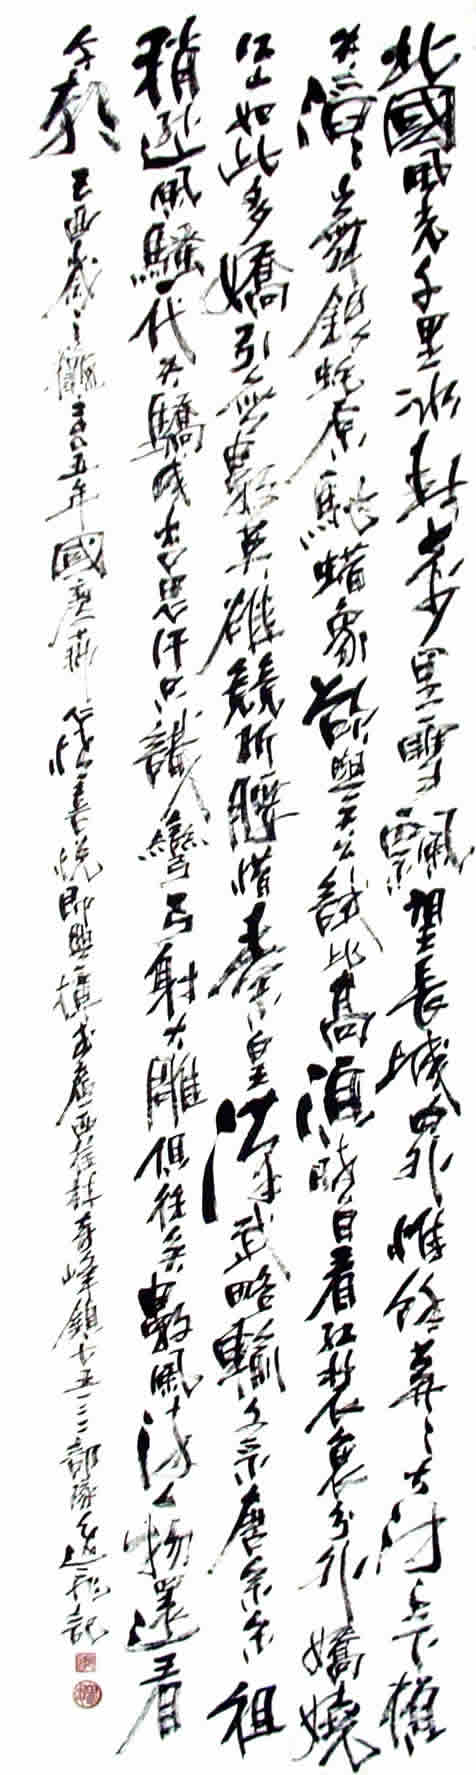 北國風光千里冰封萬里雪飄望長城內外惟餘莽々大河上下頓
失滔々山舞銀蛇原馳蜡象欲與天公試比高須晴日看紅裝素裹分外嬌嬈
江山如此多嬌引無數英雄競折腰惜秦皇漢武略輸文采唐宗宋祖
稍遜風騷一代天驕成吉思汗只識彎弓射大雕俱往矣數風流人物還看
今朝 乙酉歲五年國慶節心情喜悅即興揮書廣西桂林奇峰鎮七五一三二部隊記